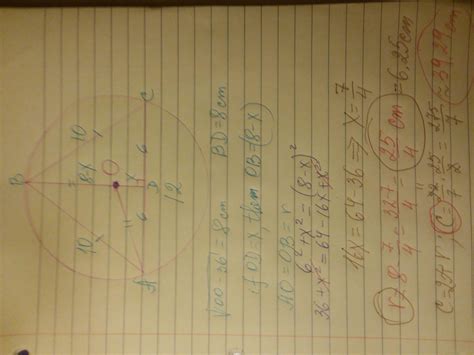 B
10
8-x
10
O
x
A
6
D
6
C
12
√100-36 = 8cm BD = 8cm
if OD = x, then OB = (8-x)
AO = OB = r
6² + x² = (8-x)²
36 + x² = 64 - 16x + x²
16x = 64-36 => x = 7/4
r = 8 - 7/4 = 32-7/4 = 25/4 cm = 6,25cm
C = 2πr ; C = 22/7 · 25/2 = 275/7 ≈ 39,29 cm